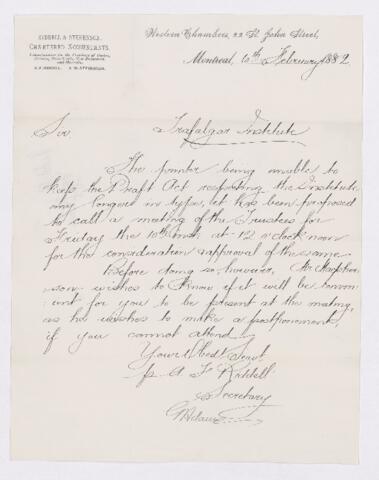 RIDDELL & STEVENSON,
CHARTERED ACCOUNTANTS.
Western Chambers, 22 St. John Street,
Montreal, 10th February 1882
Sir
Trafalgar Institute
The printer being unable to
keep the Draft Act respecting the Institute
any longer in type, it has been proposed
to call a meeting of the Trustees for
Friday the 10th inst, at 12 o'clock noon
for the consideration & approval of the same.
Before doing so, however, Mr
son wishes to know if it will be conven-
ient for you to be present at the meeting,
as he wishes to make a postponement,
if you cannot attend.
Your Obedt Servt
p A F Riddell
Secretary